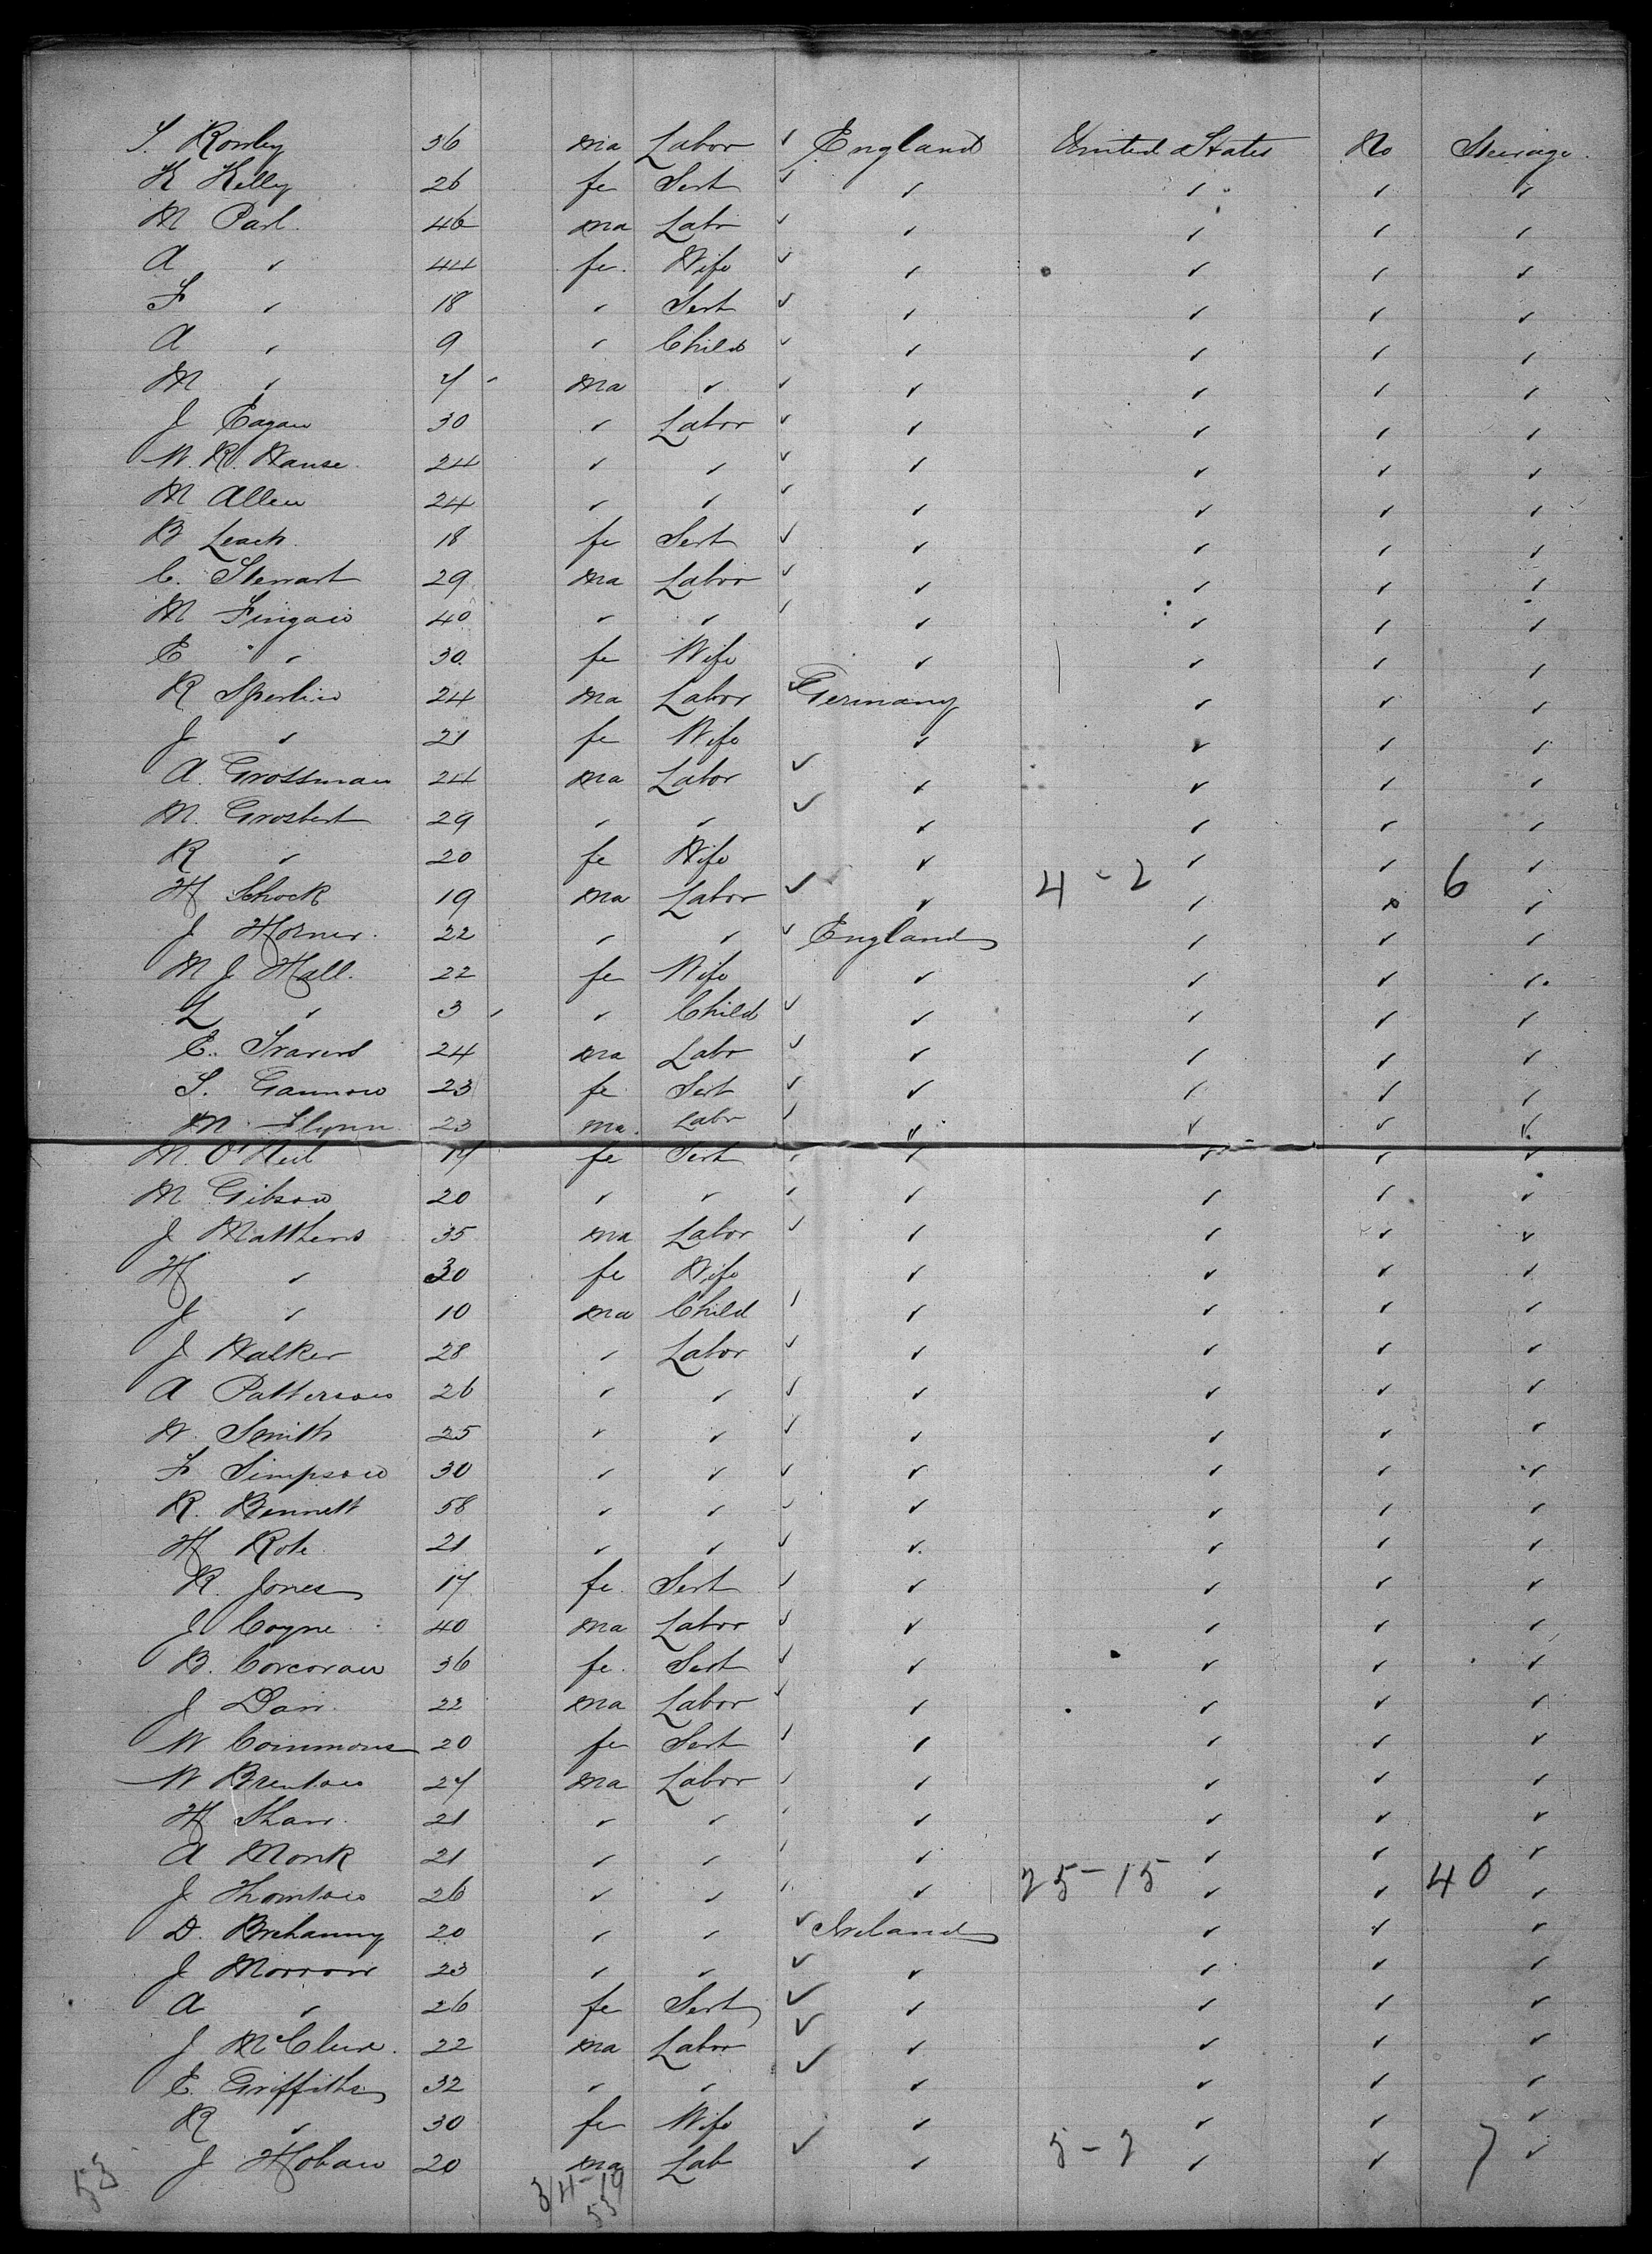 S. Rowley 36 ma Labor ✓ England United States No Steerage.
K Kelly 26 fe Sert ✓ ✓ ✓ ✓ ✓
M Parl. 46 ma Labr ✓ ✓ ✓ ✓ ✓
A ✓ 44 fe. Wife ✓ ✓ ✓ ✓ ✓
F ✓ 18 ✓ Sert ✓ ✓ ✓ ✓ ✓
A ✓ 9 ✓ Child ✓ ✓ ✓ ✓ ✓
M ✓ 7 ma ✓ ✓ ✓ ✓ ✓ ✓
J Eagan 30 ✓ Labor ✓ ✓ ✓ ✓ ✓
W. R. Hause. 24 ✓ ✓ ✓ ✓ ✓ ✓ ✓
M Allen 24 ✓ ✓ ✓ ✓ ✓ ✓ ✓
B Leach 18 fe Sert ✓ ✓ ✓ ✓ ✓
C. Stewart 29 ma Labor ✓ ✓ ✓ ✓ ✓
M Fingan 40 ✓ ✓ ✓ ✓ ✓ ✓ ✓
E ✓ 30. fe Wife ✓ ✓ ✓ ✓
R Sperlin 24 ma Labor ✓ Germany ✓ ✓ ✓
J ✓ 21 fe Wife ✓ ✓ ✓ ✓
A. Grossman 24 ma Labor ✓ ✓ ✓ ✓ ✓
M. Grosbert 29 ✓ ✓ ✓ ✓ ✓ ✓ ✓
R ✓ 20 fe Wife ✓ ✓ ✓ ✓
H Schock 19 ma Labor ✓ ✓ 4 - 2 ✓ ✓ 6 ✓
J Horner. 22 ✓ ✓ ✓ England ✓ ✓ ✓
M J Hall. 22 fe Wife ✓ ✓ ✓ ✓
L ✓ 3 ✓ Child ✓ ✓ ✓ ✓ ✓
E. Travers 24 ma Labr ✓ ✓ ✓ ✓ ✓
S. Gannon 23 fe Sert ✓ ✓ ✓ ✓ ✓
M Flynn 23 ma. Labr ✓ ✓ ✓ ✓ ✓
M. O'Neil 17 fe Sert ✓ ✓ ✓ ✓ ✓
M Gibson 20 ✓ ✓ ✓ ✓ ✓ ✓ ✓
J Matthews 35 ma Labor ✓ ✓ ✓ ✓ ✓
H ✓ 30 fe Wife ✓ ✓ ✓ ✓
J ✓ 10 ma Child ✓ ✓ ✓ ✓ ✓
J Walker 28 ✓ Labor ✓ ✓ ✓ ✓ ✓
A Patterson 26 ✓ ✓ ✓ ✓ ✓ ✓ ✓
W. Smith 25 ✓ ✓ ✓ ✓ ✓ ✓ ✓
F Simpson 30 ✓ ✓ ✓ ✓ ✓ ✓ ✓
R. Bennett 58 ✓ ✓ ✓ ✓ ✓ ✓ ✓
H Rote 21 ✓ ✓ ✓ ✓ ✓ ✓ ✓
R. Jones 17 fe. Sert ✓ ✓ ✓ ✓ ✓
J Coyne 40 ma Labor ✓ ✓ ✓ ✓ ✓
B. Corcoran 36 fe. Sert ✓ ✓ ✓ ✓ ✓
J Darr. 22 ma Labor ✓ ✓ ✓ ✓ ✓
W Commons 20 fe Sert ✓ ✓ ✓ ✓ ✓
W Brenton 27 ma Labor ✓ ✓ ✓ ✓ ✓
H Shaw. 21 ✓ ✓ ✓ ✓ ✓ ✓ ✓
A Monk 21 ✓ ✓ ✓ ✓ ✓ ✓ ✓
J Thornton 26 ✓ ✓ ✓ ✓ 25 - 15 ✓ ✓ 40 ✓
D. Brehanny 20 ✓ ✓ ✓ Ireland ✓ ✓ ✓
J Morrow 23 ✓ ✓ ✓ ✓ ✓ ✓ ✓
A ✓ 26 fe Sert ✓ ✓ ✓ ✓ ✓
J McClure. 22 ma Labor ✓ ✓ ✓ ✓ ✓
E. Griffiths 32 ✓ ✓ ✓ ✓ ✓ ✓ ✓
R ✓ 30 fe Wife ✓ ✓ ✓ ✓
J Hoban 20 ma Lab ✓ ✓ 5 - 2 ✓ ✓ 7 ✓
53 34 - 19
53